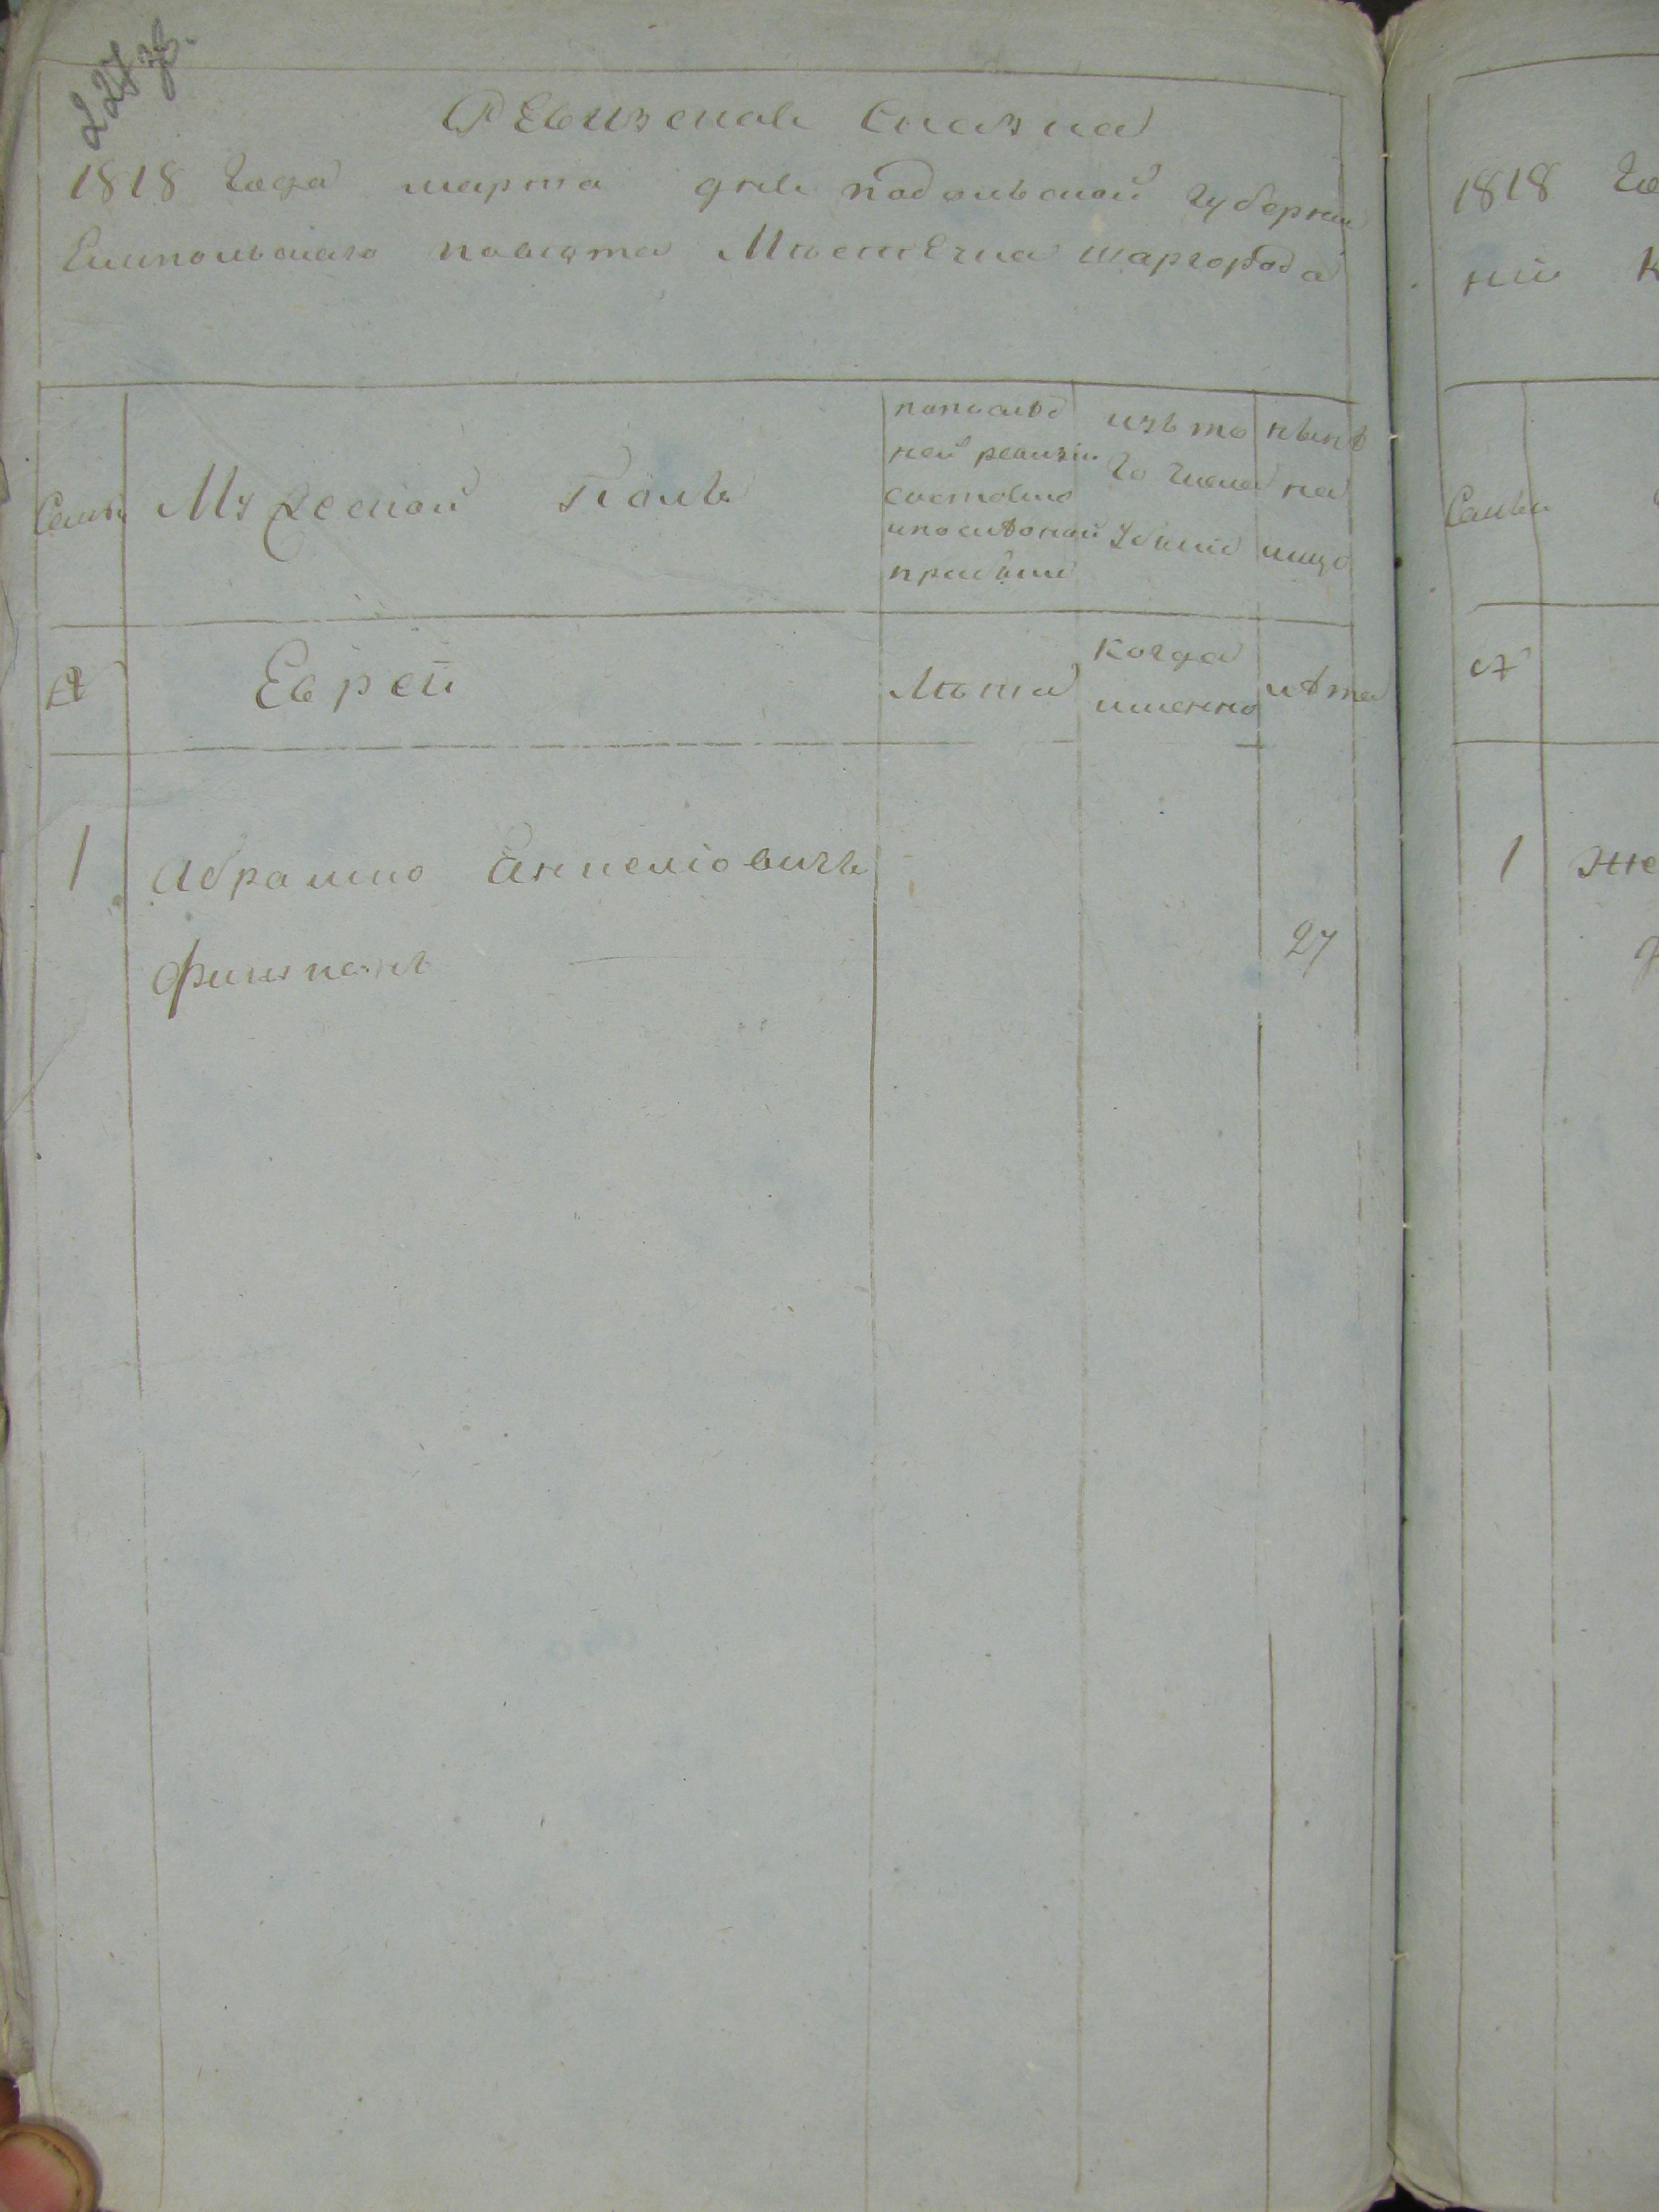 227
Ревизская Сказка
1818 Года марта дня подольской губернии
Ямпольского повета Местечка шаргорода
Семьи
Мужеской Полъ
попослѣд
ней ревизіи
состояло
ипослѣоной
прибыло
изъ то
го числа
Убыло
нынѣ
на
лицо
Евреи
Лѣта
Когда
именно
лѣта
1
Абрамко Анкеліовичъ
27
1818 Го
нии К
Семьи
1 Же